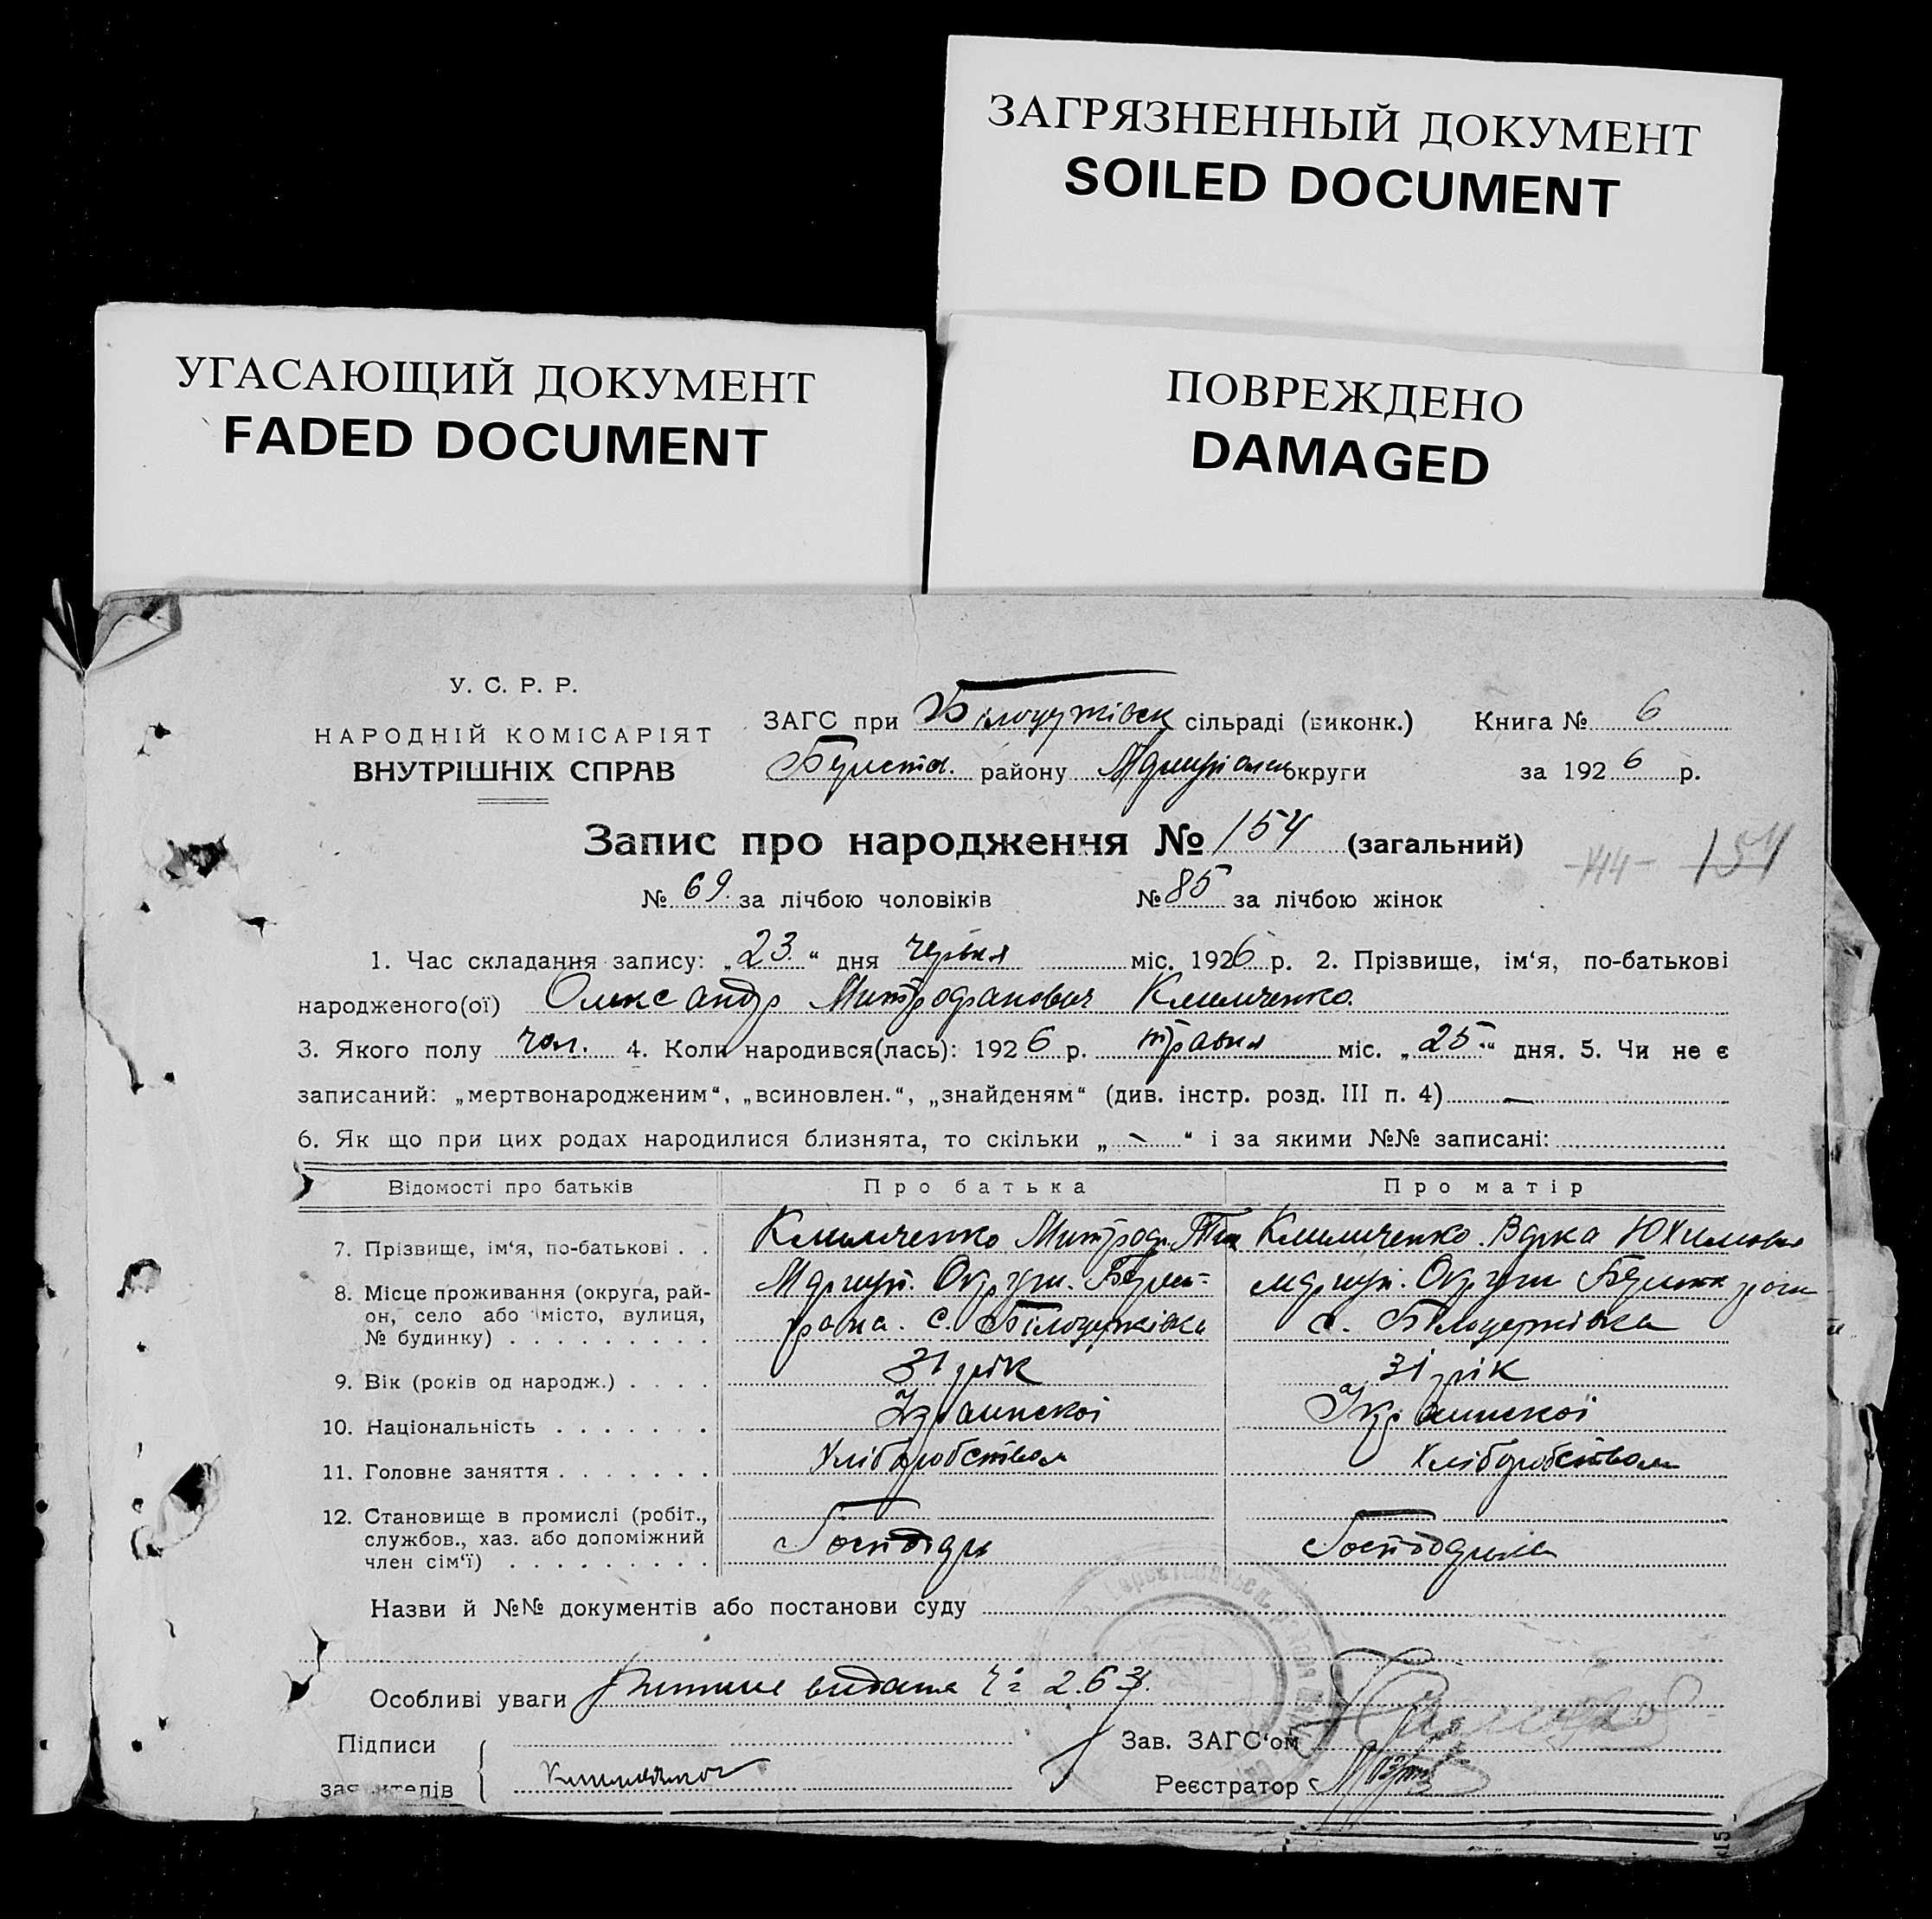 ЗАГРЯЗНЕННЫЙ ДОКУМЕНТ
SOILED DOCUMENT
УГАСАЮЩИЙ ДОКУМЕНТ
FADED DOCUMENT
ПОВРЕЖДЕНО
DAMAGED
У. С. Р. Р.
НАРОДНІЙ КОМІСАРІЯТ
ВНУТРІШНІХ СПРАВ
ЗАГС при сільраді (виконк.) Книга № 6
району округи за 1926 р.
Запис про народження № 154 (загальний)
-144- 154
№ 69. за лічбою чоловіків № 85 за лічбою жінок
1. Час складання запису: „23“ дня червня міс. 1926 р. 2. Прізвище, ім‘я, по-батькові
народженого(ої) Олександр Митрофанович Климченко.
3. Якого полу чол. 4. Коли народився(лась): 1926 р. травня міс. „25“ дня. 5. Чи не є
записаний: „мертвонародженим“, „всиновлен.“, „знайденям“ (див. інстр. розд. III п. 4) —
6. Як що при цих родах народилися близнята, то скільки „-“ і за якими №№ записані:
Відомості про батьків Про батька Про матір
7. Прізвище, ім‘я, по-батькові . . Климченко Митроф. Климченко Варка Юхимовна
8. Місце проживання (округа, рай- Маріуп. Округи Маріуп. Округи
он, село або місто, вулиця, с. Білоцерківка с. Білоцерківка
№ будинку) . . . . . . . . .
9. Вік (років од народж.) . . . . 31 рік 31 рік
10. Національність . . . . . . . Української Української
11. Головне заняття . . . . . . . Хліборобством Хліборобством
12. Становище в промислі (робіт.,
службов., хаз. або допоміжний Господар Господарка
член сім‘ї) . . . . . . . . .
Назви й №№ документів або постанови суду
Особливі уваги видана
Підписи Зав. ЗАГС‘ом
Реєстратор
15